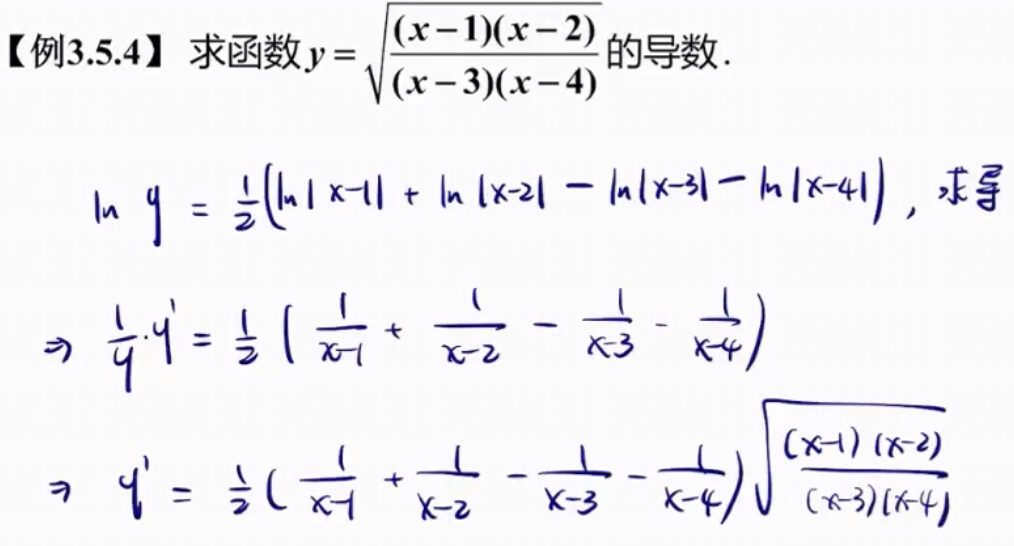 【例3.5.4】 求函数 y = √((x−1)(x−2) / (x−3)(x−4)) 的导数.
ln y = 1/2 (ln|x−1| + ln|x−2| − ln|x−3| − ln|x−4|), 求导
⇒ 1/y · y' = 1/2 ( 1/(x−1) + 1/(x−2) − 1/(x−3) − 1/(x−4) )
⇒ y' = 1/2 ( 1/(x−1) + 1/(x−2) − 1/(x−3) − 1/(x−4) ) √((x−1)(x−2) / (x−3)(x−4))